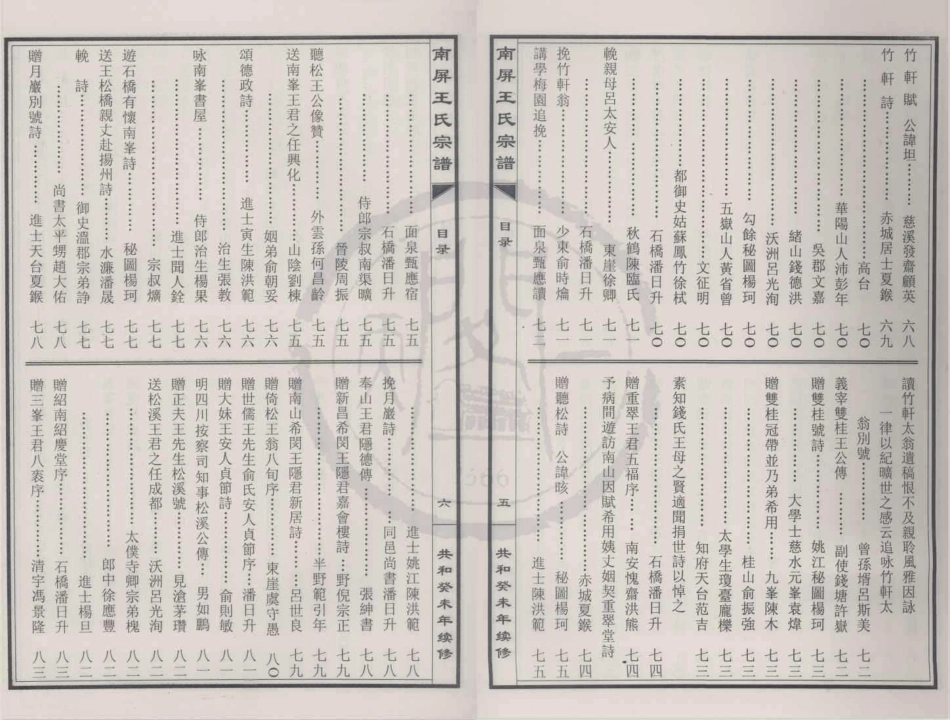 竹軒賦 公諱坦……慈溪發齋顧英 六八
竹軒詩……赤城居士夏鍭 六九
……高台 七〇
……華陽山人沛彭年 七〇
……吳郡文嘉 七〇
……緒山錢德洪 七〇
……沃洲呂光洵 七〇
……勾餘秘圖楊珂 七〇
……五嶽山人黃省曾 七〇
……文征明 七〇
……都御史姑蘇鳳竹徐栻 七〇
……石橋潘日升 七〇
……秋鶴陳臨氏 七一
輓親母呂太安人……東崖徐卿 七一
……石橋潘日升 七一
挽竹軒翁……少東俞時爚 七一
講學梅園追挽……面泉甄應讀 七二
讀竹軒太翁遺稿恨不及親聆風雅因詠
一律以紀曠世之感云追咏竹軒太
翁別號……曾孫壻呂斯美 七二
義宰雙桂王公傳……副使錢塘許嶽 七二
贈雙桂號詩……姚江秘圖楊珂 七三
……大學士慈水元峯袁煒 七三
贈雙桂冠帶並乃弟希用……九峯陳木 七三
……桂山俞振強 七三
……太學生瓊臺龐櫟 七三
……知府天台范吉 七三
素知錢氏王母之賢適聞捐世詩以悼之
……石橋潘日升 七四
贈重翠王君五福序……南安愧齋洪熊 七四
予病間遊訪南山因賦希用姨丈姻契重翠堂詩
……赤城夏鍭 七四
贈聽松詩 公諱晐……秘圖楊珂 七五
……進士陳洪範 七五
南屏王氏宗譜
目录
五
共和癸未年续修
南屏王氏宗譜
目录
六
共和癸未年续修
……面泉甄應宿 七五
……石橋潘日升 七五
……侍郎宗叔南渠曠 七五
……晉陵周振 七五
聽松王公像贊……外雲孫何昌齡 七五
送南峯王君之任興化……山陰劉棟 七五
……姻弟俞朝妥 七六
頌德政詩……進士寅生陳洪範 七六
……治生張教 七六
咏南峯書屋……侍郎治生楊果 七六
……進士聞人銓 七七
……宗叔爌 七七
遊石橋有懷南峯詩……秘圖楊珂 七七
送王松橋親丈赴揚州詩……水濂潘晟 七七
輓詩……御史溫郡宗弟諍 七七
……尚書太平甥趙大佑 七八
贈月巖別號詩……進士天台夏鍭 七八
……進士姚江陳洪範 七八
挽月巖詩……同邑尚書潘日升 七八
奉山王君隱德傳……張紳書 七八
贈新昌希閔王隱君嘉會樓詩……野倪宗正 七九
……半野範引年 七九
贈南山希閔王隱君新居詩……呂世良 七九
贈倚松王翁八旬序……東崖虞守愚 八〇
贈世儒王先生俞氏安人貞節序……潘日升 八一
贈大妹王安人貞節詩……俞則敏 八一
明四川按察司知事松溪公傳……男如鵬 八一
贈正夫王先生松溪號……見滄茅瓚 八二
送松溪王君之任成都……沃洲呂光洵 八二
……太僕寺卿宗弟槐 八二
……郎中徐應豐 八二
……進士楊旦 八二
贈紹南紹慶堂序……石橋潘日升 八三
贈三峯王君八袠序……清宇馮景隆 八三